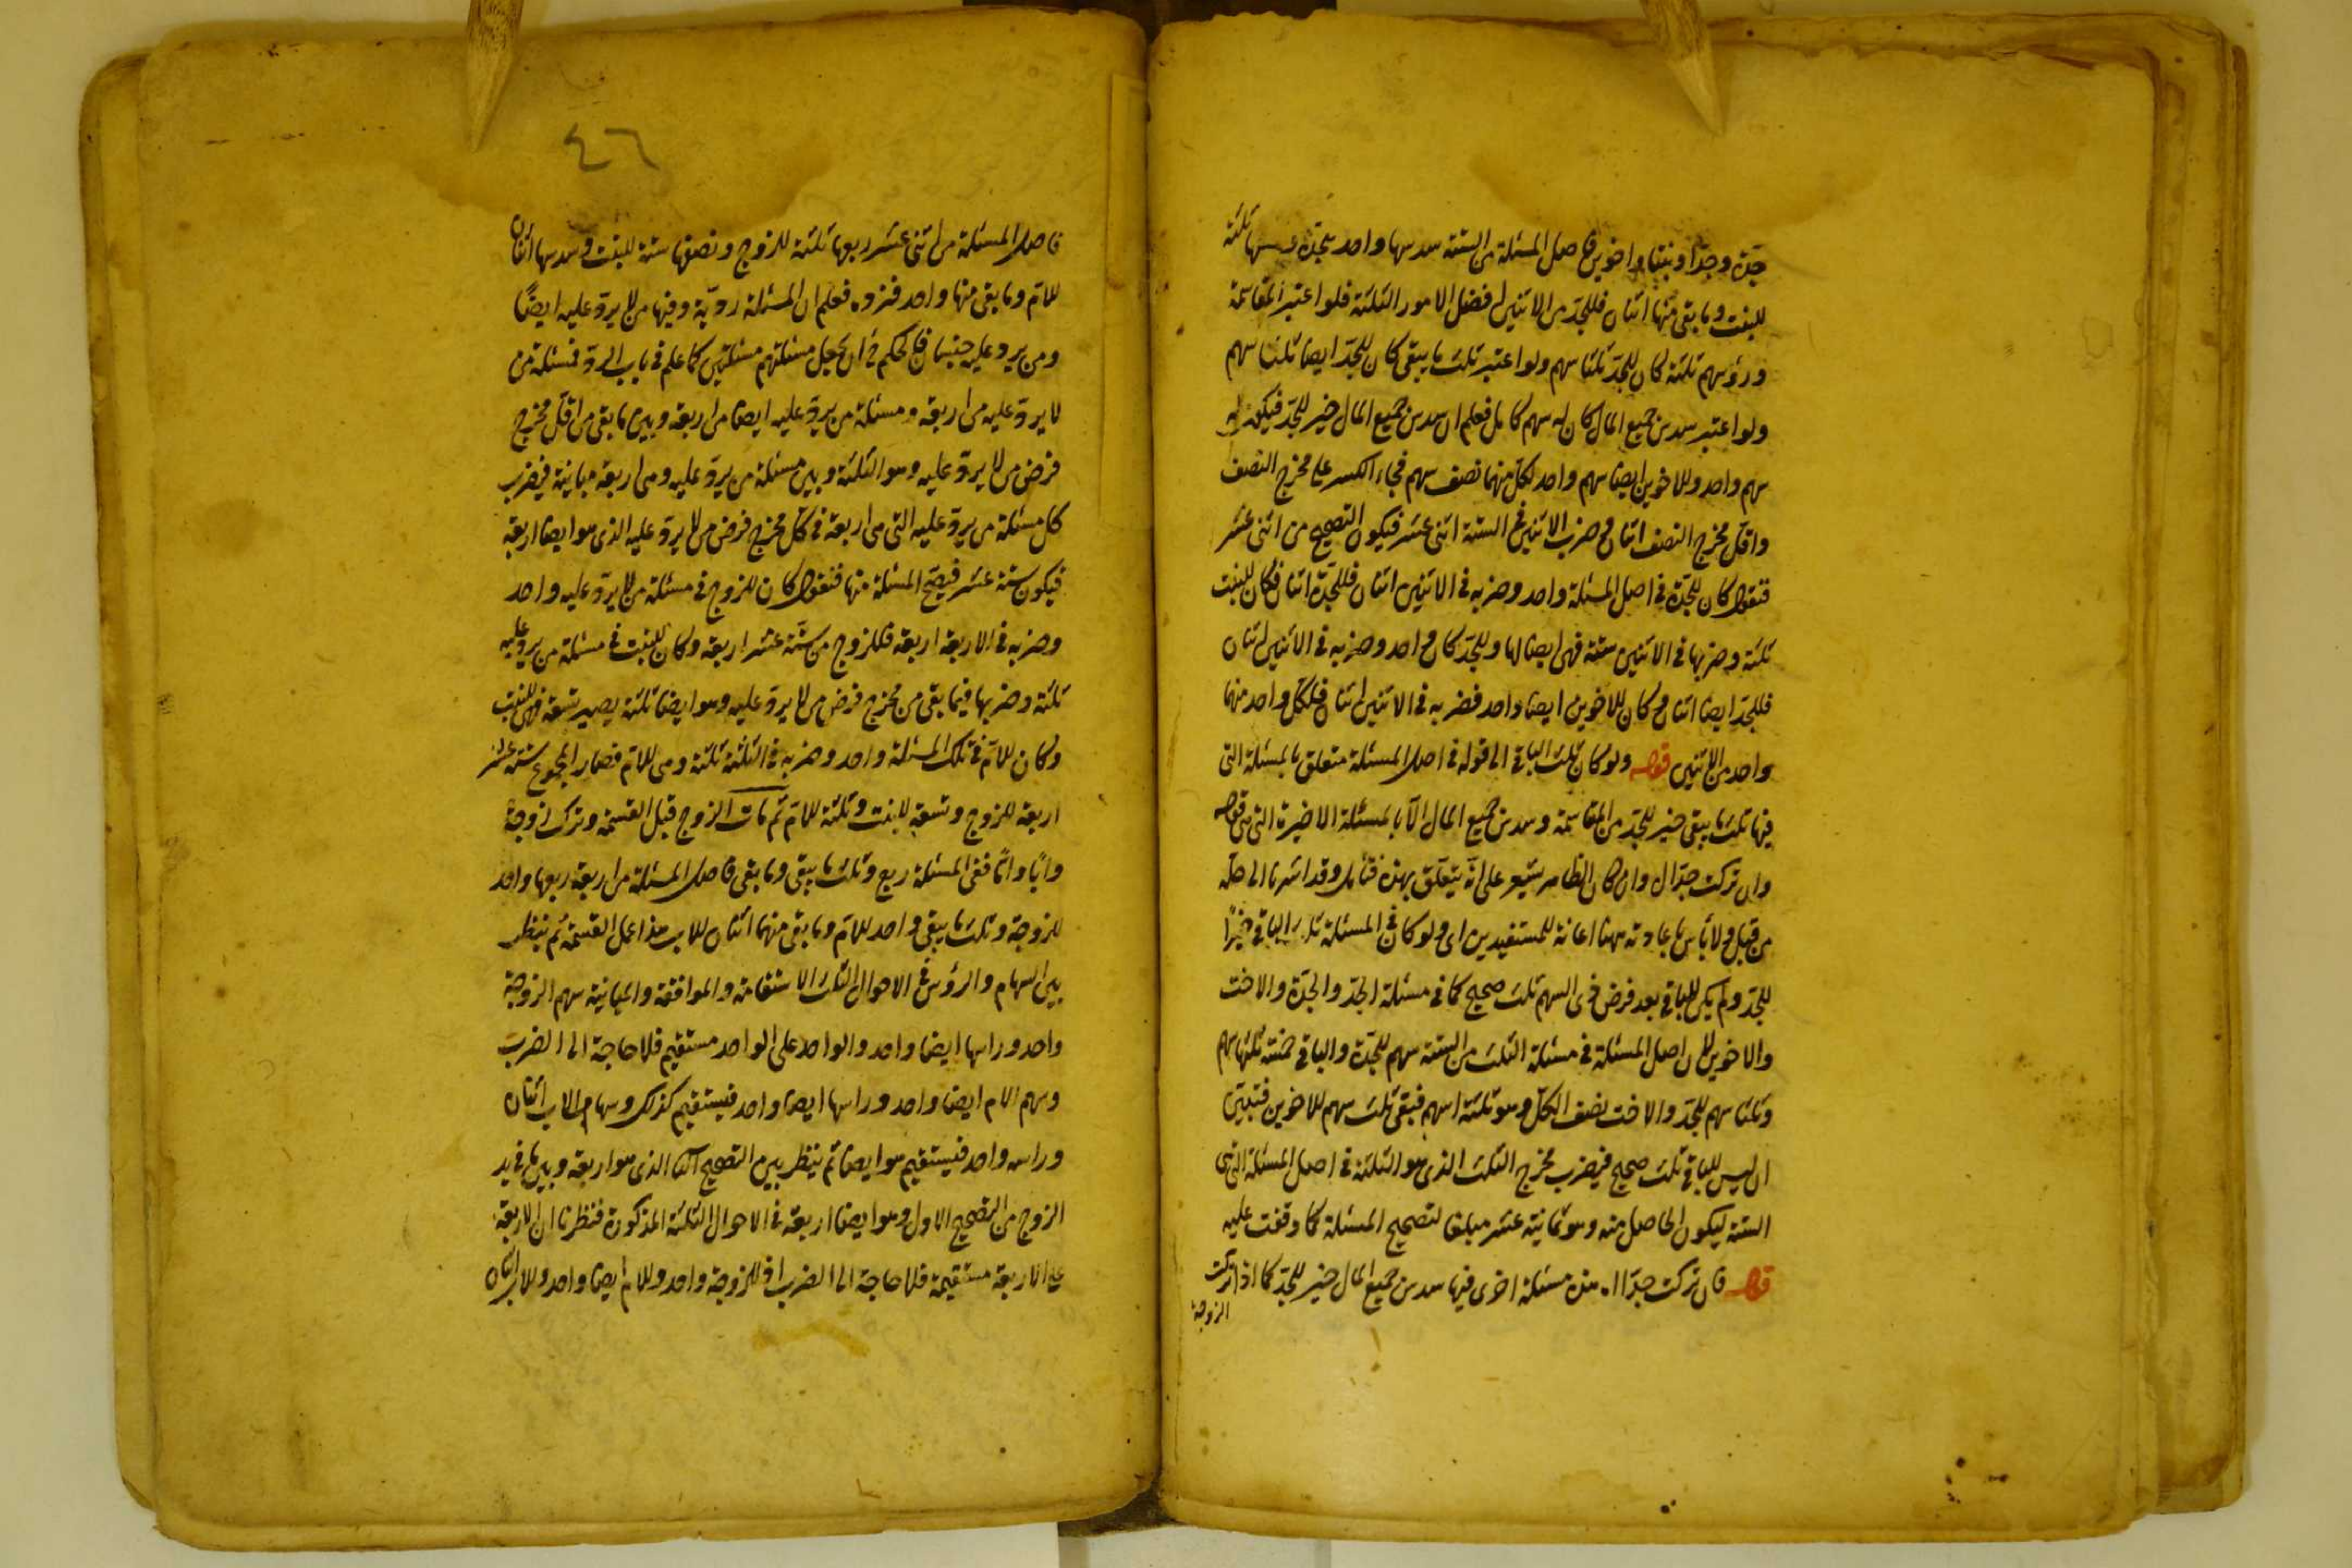 جدة وجدا وبنتا واخوين فاصل المسئلة من الستة سدسها واحد للجدة ونصفها ثلثة
للبنت وما بقى منها اثنان فللجد من الاثنين افضل الامور الثلثة فلو اعتبر المقاسمة
ورؤسهم ثلثة كان للجد ثلثا سهم ولو اعتبر ثلث ما يبقى كان للجد ايضا ثلثا سهم
ولو اعتبر سدس جميع المال كان له سهم كامل فعلم ان سدس جميع المال خير للجد فيكون له
سهم واحد وللاخوين ايضا سهم واحد لكل منهما نصف سهم فجاء الكسر على مخرج النصف
واقل مخرج النصف اثنان وضرب الاثنين فى الستة اثنى عشر فيكون التصحيح من اثنى عشر
فنقول كان للجدة فى اصل المسئلة واحد وضربه فى الاثنين اثنان فللجدة اثنان وكان للبنت
ثلثة وضربها فى الاثنين ستة فهى ايضا لها وللجد كان واحد وضربه فى الاثنين اثنان
فللجد ايضا اثنان وكان للاخوين ايضا واحد فضربه فى الاثنين اثنان فلكل واحد منهما
واحد من الاثنين قوله ولو كان ثلث الباقى الى قوله فى اصل المسئلة متعلق بالمسئلة التى
فيها ثلث ما يبقى خير للجد من المقاسمة وسدس جميع المال لا بالمسئلة الاخيرة التى هى قوله
وان تركت جدا ال وان كان الظاهر يشعر على انه يتعلق بهذه فتأمل وقد اشرنا الى حله
من قبل ولا بأس باعادته ههنا اعانة للمستفيدين اى ولو كان فى المسئلة ثلث الباقى خيرا
للجد ولم يكن للباقى بعد فرض ذوى السهم ثلث صحيح كما فى مسئلة الجد والجدة والاخت
والاخوين لان اصل المسئلة فى مسئلة الثلث من الستة سهم للجدة والباقى خمسة ثلثها سهم
وثلثا سهم للجد والاخت نصف الكل وهو ثلثة اسهم فبقى ثلث سهم للاخوين فتبين
ان ليس للباقى ثلث صحيح فيضرب مخرج الثلث الذى هو الثلثة فى اصل المسئلة التى هى
الستة ليكون الحاصل منه وهو ثمانية عشر مبلغا لتصحيح المسئلة كما وقفت عليه
قوله فان تركت جدا اه هذه مسئلة اخرى فيها سدس جميع المال خير للجد كما اذا تركت
الزوجة
٤٦
فاصل المسئلة من اثنى عشر ربعها ثلثة للزوج ونصفها ستة للبنت وسدسها اثنان
للام وما بقى منها واحد فنرده فعلم ان المسئلة ردية وفيها من لا يرد عليه ايضا
ومن يرد عليه جنسان فالحكم فى ان يجعل مسئلتهم مسئلتين كما علم فى باب الرد فمسئلة من
لا يرد عليه من اربعة ومسئلة من يرد عليه ايضا من اربعة وبين ما بقى من اقل مخرج
فرض من لا يرد عليه وهو الثلثة وبين مسئلة من يرد عليه وهى اربعة مباينة فيضرب
كل مسئلة من يرد عليه التى هى اربعة فى كل مخرج فرض من لا يرد عليه الذى هو ايضا اربعة
فيكون ستة عشر فتصح المسئلة منها فنقول كان للزوج فى مسئلة من لا يرد عليه واحد
وضربه فى الاربعة اربعة فللزوج من ستة عشر اربعة وكان للبنت فى مسئلة من يرد عليه
ثلثة وضربها فيما بقى من مخرج فرض من لا يرد عليه وهو ايضا ثلثة يصير تسعة فهى للبنت
وكان للام فى تلك المسئلة واحد وضربه فى الثلثة ثلثة وهى للام فصار المجموع ستة عشر
اربعة للزوج وتسعة للبنت وثلثة للام ثم مات الزوج قبل القسمة وترك زوجة
وابا واما ففى المسئلة ربع وثلث ما يبقى وما بقى فاصل المسئلة من اربعة ربعها واحد
للزوجة وثلث ما يبقى واحد للام وما بقى منهما اثنان للاب هذا عمل القسمة ثم ينظر
بين السهام والرؤس فى الاحوال الثلث الاستقامة والموافقة والمباينة سهم الزوجة
واحد وراسها ايضا واحد والواحد على الواحد مستقيم فلا حاجة الى الضرب
وسهم الام ايضا واحد وراسها ايضا واحد فيستقيم كذلك وسهام الاب اثنان
وراسه واحد فيستقيم هو ايضا ثم ينظر بين التصحيح الثانى الذى هو اربعة وبين ما فى يد
الزوج من التصحيح الاول وهو ايضا اربعة فى الاحوال الثلثة المذكورة فنظرنا ان الاربعة
على الاربعة مستقيمة فلا حاجة الى الضرب اذ للزوجة واحد وللام ايضا واحد وللاب اثنان